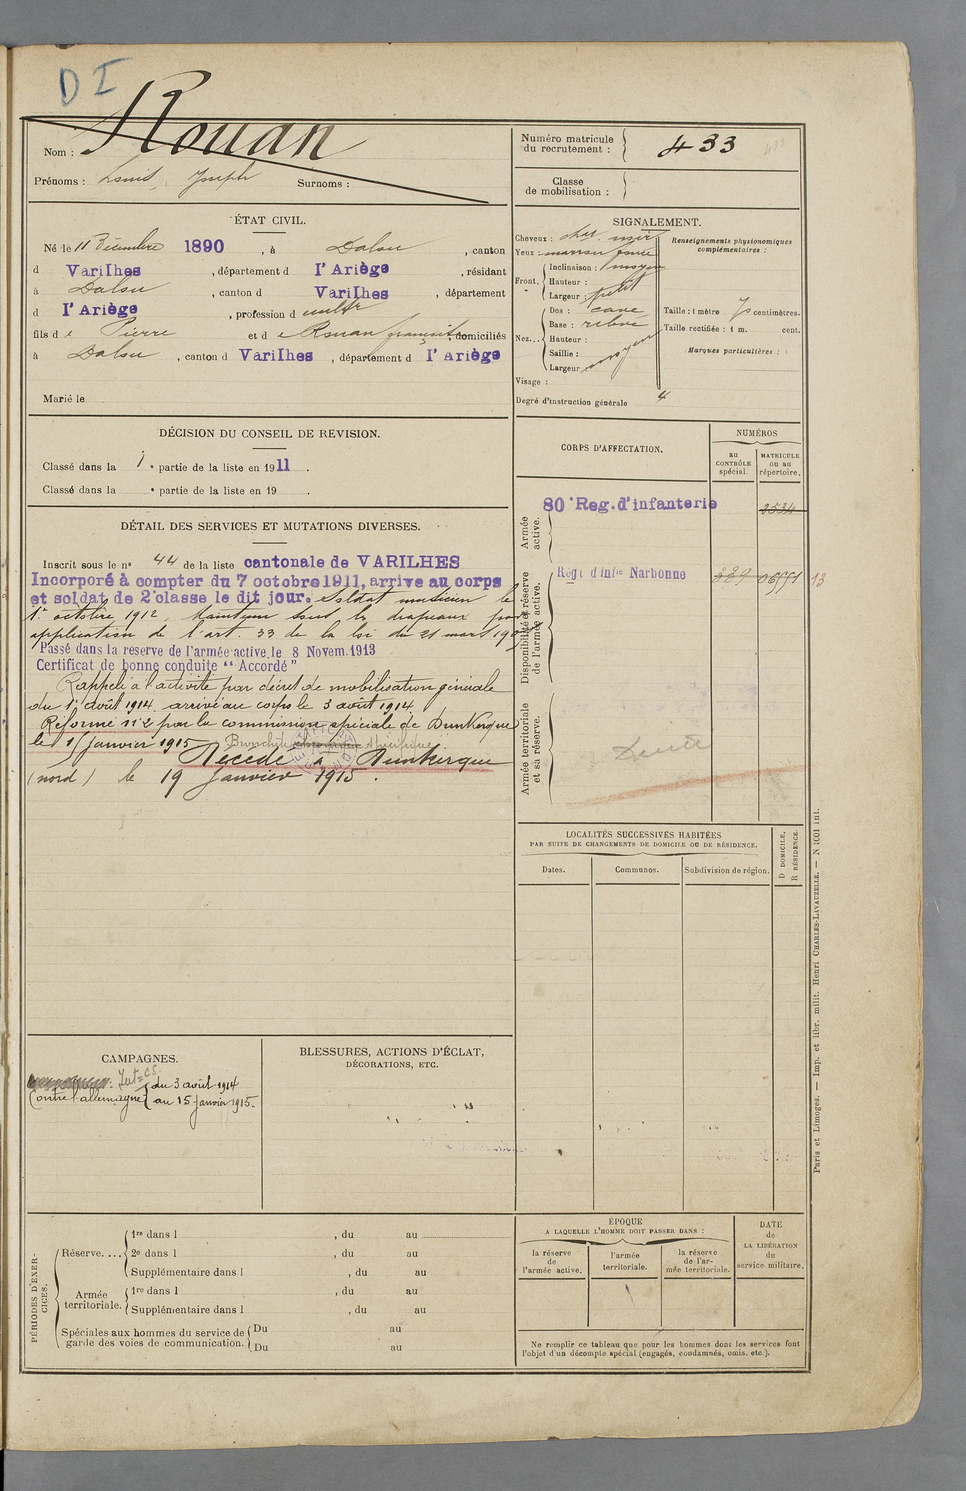 D I
Nom : Rouan
Prénoms : Louis Joseph Surnoms :
Numéro matricule du recrutement : 433
Classe de mobilisation :
ÉTAT CIVIL.
Né le 11 Décembre 1890, à Dalou, canton
d Varilhes, département d l'Ariège, résidant
à Dalou, canton d Varilhes, département
d l'Ariège, profession d cultr
fils de Pierre et de Rouan françoise, domiciliés
à Dalou, canton d Varilhes, département d l'Ariège
Marié le
SIGNALEMENT.
Cheveux : noir
Yeux : marron foncé
Front. Inclinaison : moyen
Hauteur :
Largeur : petit
Nez... Dos : cave
Base :
Hauteur :
Saillie :
Largeur moyen
Visage :
Degré d'instruction générale 4
Renseignements physionomiques complémentaires :
Taille : 1 mètre 70 centimètres.
Taille rectifiée : 1 m. cent.
Marques particulières :
DÉCISION DU CONSEIL DE REVISION.
Classé dans la 1e partie de la liste en 1911.
Classé dans la e partie de la liste en 19 .
DÉTAIL DES SERVICES ET MUTATIONS DIVERSES.
Inscrit sous le n° 44 de la liste cantonale de VARILHES
Incorporé à compter du 7 octobre 1911, arrive au corps
et soldat de 2e classe le dit jour. Soldat musicien le
1er octobre 1912. Maintenu sous les drapeaux par
application de l'art. 33 de la loi du 21 mars 1905
Passé dans la reserve de l'armée active, le 8 Novem. 1913
Certificat de bonne conduite "Accordé"
Rappelé à l'activité par décret de mobilisation générale
du 1er août 1914 arrivé au corps le 3 août 1914
Réformé n° 2 par la commission spéciale de Dunkerque
le 15 janvier 1915 Bronchite spécifique
Décédé à Dunkerque
(nord) le 19 Janvier 1915.
CORPS D'AFFECTATION.
NUMÉROS
au CONTRÔLE spécial.
MATRICULE ou au répertoire.
Armée active.
80e Reg. d'infanterie
Disponibilité et réserve de l'armée active.
Régt d'Infie Narbonne 13
Armée territoriale et sa réserve.
LOCALITÉS SUCCESSIVES HABITÉES
PAR SUITE DE CHANGEMENTS DE DOMICILE OU DE RÉSIDENCE.
Dates.
Communes.
Subdivision de région.
D DOMICILE,
R RÉSIDENCE.
CAMPAGNES.
Contre l'allemagne du 3 août 1914
au 15 janvier 1915.
BLESSURES, ACTIONS D'ÉCLAT,
DÉCORATIONS, ETC.
PÉRIODES D'EXERCICES.
Réserve. ... 1re dans l , du au
2e dans l , du au
Supplémentaire dans l , du au
Armée territoriale. 1re dans l , du au
Supplémentaire dans l , du au
Spéciales aux hommes du service de garde des voies de communication. Du au
Du au
ÉPOQUE
A LAQUELLE L'HOMME DOIT PASSER DANS :
la réserve de l'armée active.
l'armée territoriale.
la réserve de l'armée territoriale.
DATE
de
LA LIBÉRATION
du
service militaire.
Ne remplir ce tableau que pour les hommes dont les services font
l'objet d'un décompte spécial (engagés, condamnés, omis, etc.).
Paris et Limoges. — Imp. et libr. milit. Henri CHARLES-LAVAUZELLE. — N 1001 int.